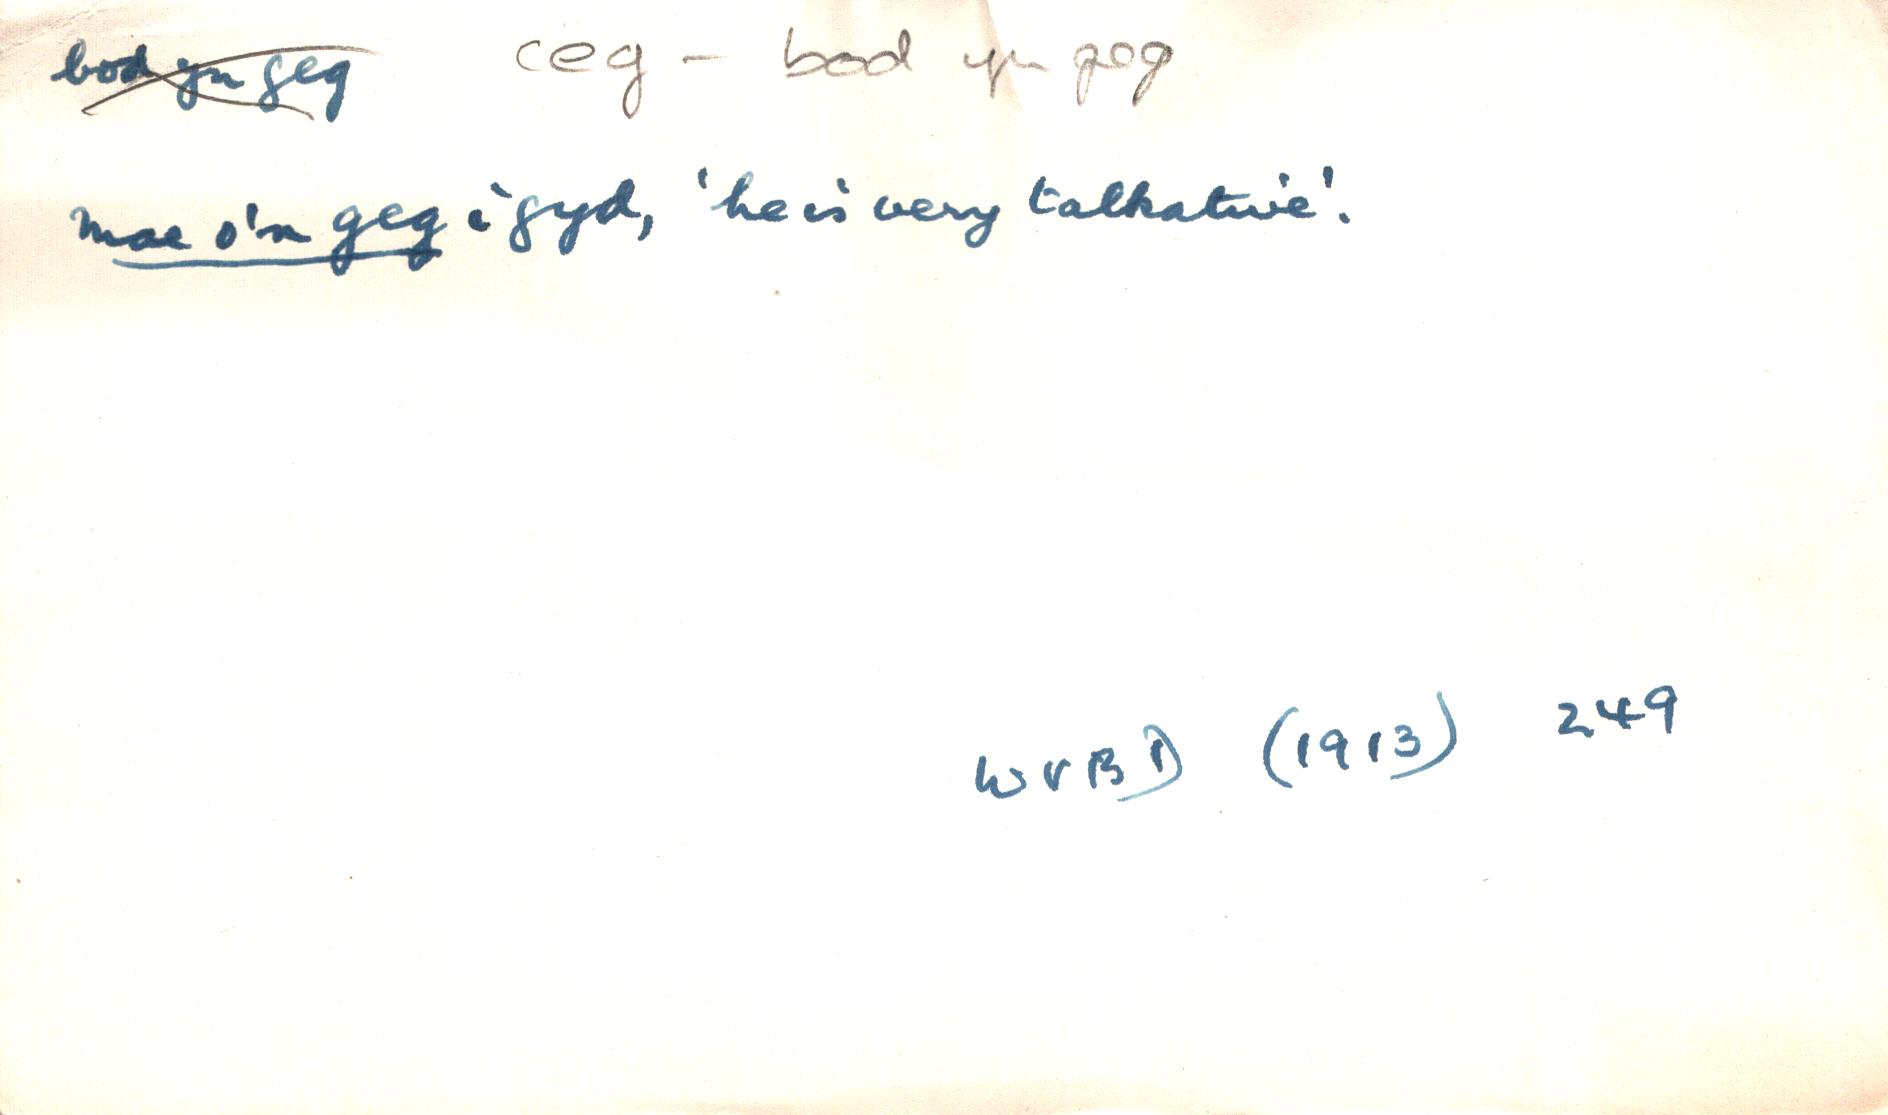 bod yn geg ceg - bod yn geg
Mae o'n geg i gyd, 'he is very talkative'.
WVBD (1913) 249